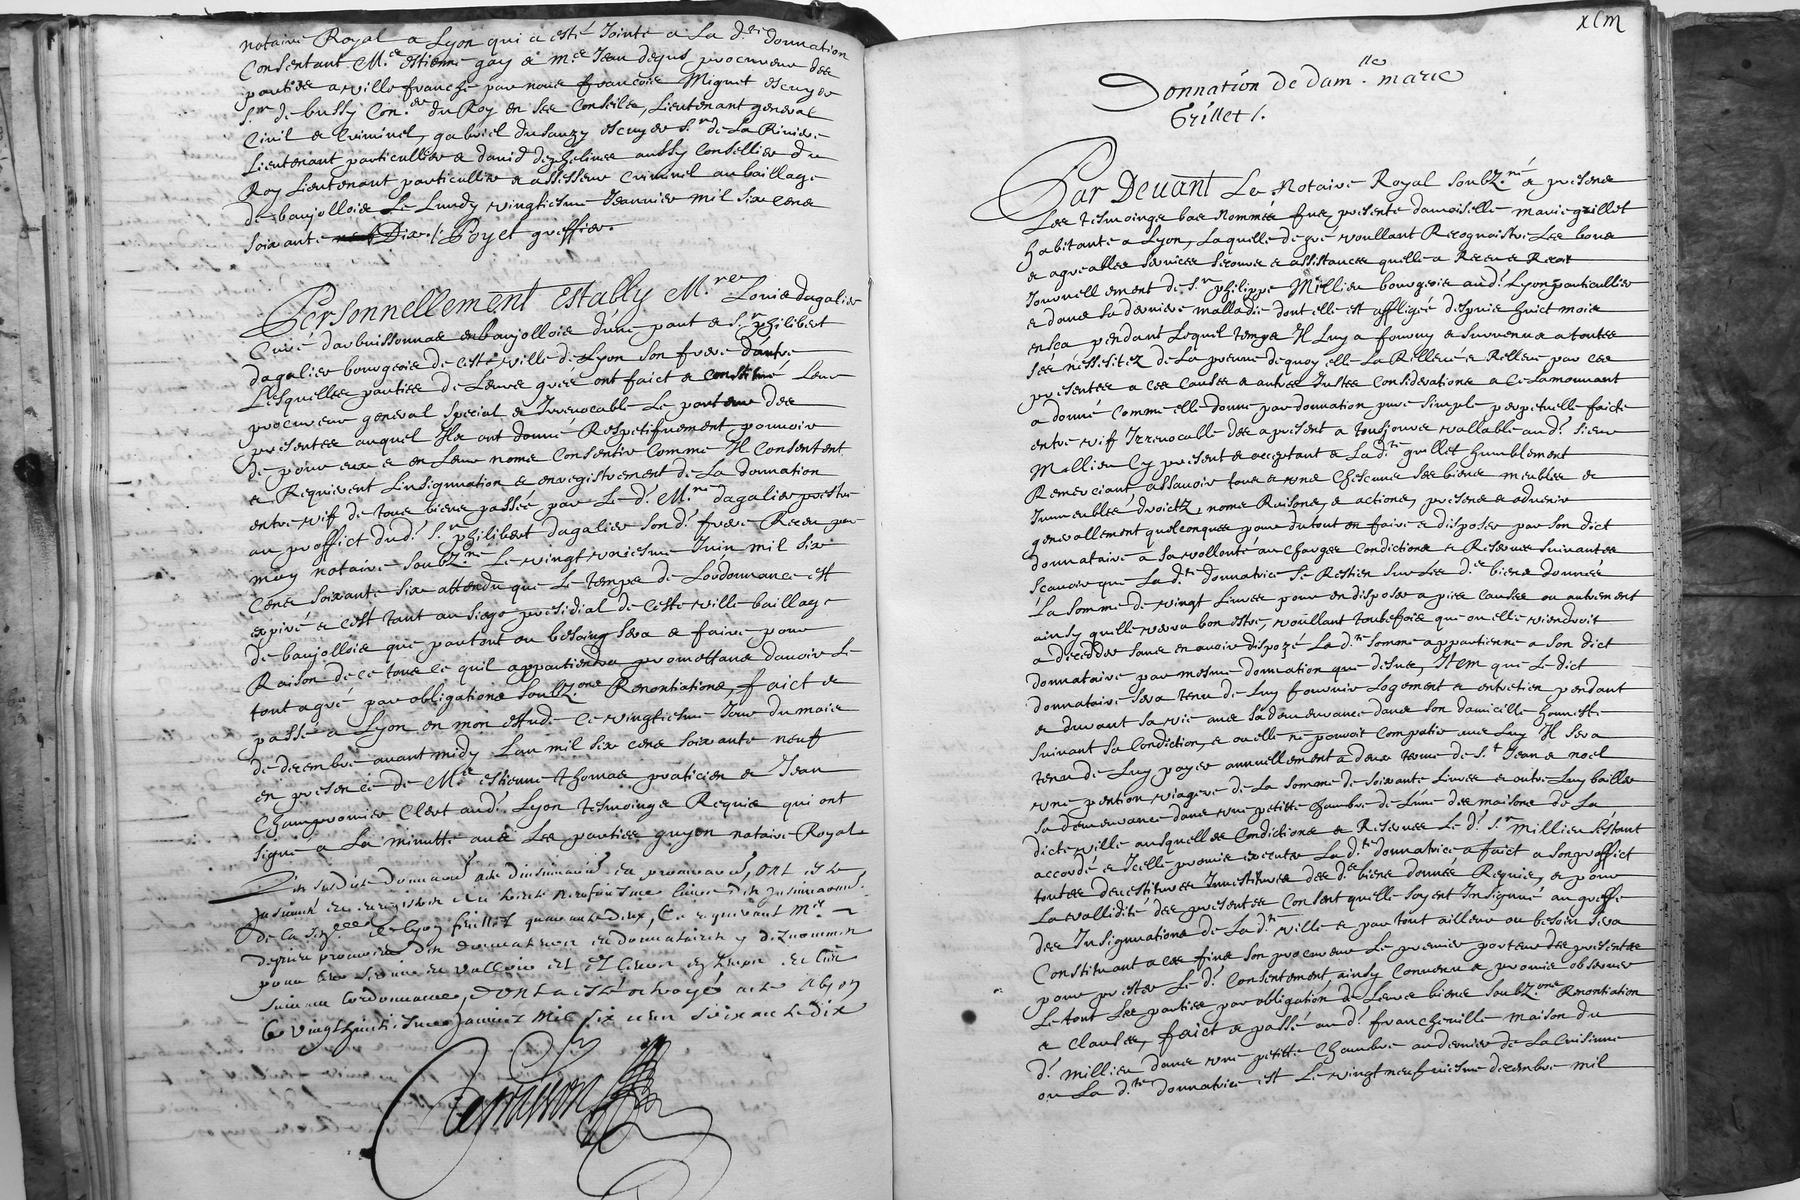 notaire Royal a Lyon qui a esté Jointe a La d.te donnation
Consentant M.e estienne gay & m.e Jean dejus procureur des
parties a ville franche par nous francois Mignot escuyer
s.r de bussy Con.er du Roy en ses Conseils, Lieutenant general
Civil & Criminel, gabriel dusauzy escuyer s.r de La Riviere
Lieutenant particullier & david aussy Consellier du
Roy Lieutenant particullier & assesseur Criminel au baillage
de baujollois Le Lundy vingtiesme Jeanvier mil six cens
soixante Dix./. Poyet greffier.
Personnellement estably M.re Louis dagalier
Curé darbuissonnas en baujollois d'une part & s.r philibert
dagalier bourgeois de ceste ville de Lyon son frere d'autre
Lesquelles parties de Leurs grées ont faict & constitué Leur
procureur general special & Irrevocable Le porteur des
presentes auquel Ils ont donné Respetifuement pouvoir
de pour eux & en Leur noms Consentir Comme Il Consentent
& Requierent Linsignuation & enregistrement de La donnation
entre vif de tous biens passée par Le d. M.re dagalier prestre
au proffict dud. s.r philibert dagalier son d. frere Receu par
moy notaire soubz.né Le vingt uniesme Juin mil six
cens soixante six attendu que Le temps de Lordonnance est
expiré & cest tant au siege presidial de ceste ville baillage
de baujollois que partout ou besoing sera & faire pour
Raison de ce tous ce quil appartiendra promettans davoir Le
tout agré par obligations soubz.ons Renontiations, faict &
passé a Lyon en mon estude Ce vingtiesme Jour du mois
de decembre avant midy Lan mil six cens soixante neuf
en presence de M.e estienne thomas praticien & Jean
Champromier Clerc aud. Lyon tesmoings Requis qui ont
signé a La minutte avec Les parties guyon notaire Royal
Les susdite donnaon acte dinsinuaon et procuraon, ont esté
Insinués et enregistrés au livre des Insinuaons
de la sen.cée de Lyon feuillet quarante deux, Ce requerant M.e
procureur des donnateur et donnataire y
pour leur servir et valloir et
suivant Lordonnance, dont a esté octroyé acte A Lyon
Le vingthuictiesme Janvier Mil six cens soixante dix
Terrasson
xLm
Donnation de dam.lle marie
Grillet /.
Par Devant Le Notaire Royal soubz.né & presens
Les tesmoings bas Nommés fut presente damoiselle marie grillet
habitante a Lyon, Laquelle de gré voullant Recognoistre Les bons
& agreables services secours & assistances quelle a Receu & Recoit
Journellement de s.r philippe Millieu bourgeois aud. Lyon particullier
& dans sa derniere malladie dont elle est affligée despuis huict mois
en sca pendant Lequel temps Il Luy a fourny & survenue a toutes
ses nessesitez de La preuve dequoy elle La Relleve & Relleve par ces
presentes a ces Causes & autres Justes Considerations a Ce La mouvant
a donné Comme elle donne par donnation pure simple perpetuelle faicte
entre vif Irrevocable des a present a tousjours vallable aud. sieur
Millieu Cy present & acceptant & La d.te grillet humblement
Remerciant assavoir tous & uns Chescuns ses biens meubles &
Immeubles droictz, noms Raisons, & actions, presens & advenir
generallement quelconques pour du tout en faire & disposer par son dict
donnataire à sa vollonté au Charges Condictions & Reserves suivantes
scavoir que La d.te donnatrice se Restien sur Les d.s biens donnés
La somme de vingt Livres pour en disposer a pies causes ou autrement
ainsy quelle verra bon estre, voullant toutefois que ou elle viendroit
a deceder sans en avoir dispozé La d.te somme appartienne a son dict
donnataire par mesme donnation que desus, Item que Le dict
donnataire sera tenu de Luy fournir Logement & entretien pendant
& durant sa vie avec sa demeurance dans son domicille honneste
suivant sa Condiction, & ou elle ne pouroit Compatir avec Luy Il sera
tenu de Luy payer annuellement a deux terme de s.t Jean & noel
une pention viagere de La somme de soixante Livres & outre Luy bailler
sa demeurance dans une petitte chambre de L'une des maisons de La
dicte ville ausquelles Condictions & Reserves Le d. s.r millieu s'estant
accordé & Icelle promis executer La d.te donnatrice a faict a son proffict
toutes devestitures Investitures des d.s biens donnés Requis, & pour
La vallidité des presentes Consent quelle soyent Insignué au greffe
des Insignuations de La d.te ville & par tout ailleur ou besoin sera
Constituant a ces fins son procureur Le premier porteur des presentes
pour prester Le d. Consentement ainsy Convenu & promis observer
Le tout Les parties par obligation de Leurs biens soubz.ons Renontiation
& clauses, faict & passé aud. francheville maison du
d. millieu dans une petitte Chambre au dernier de La Cuisinne
ou La d.te donnatrice est Le vingt neufviesme decembre mil